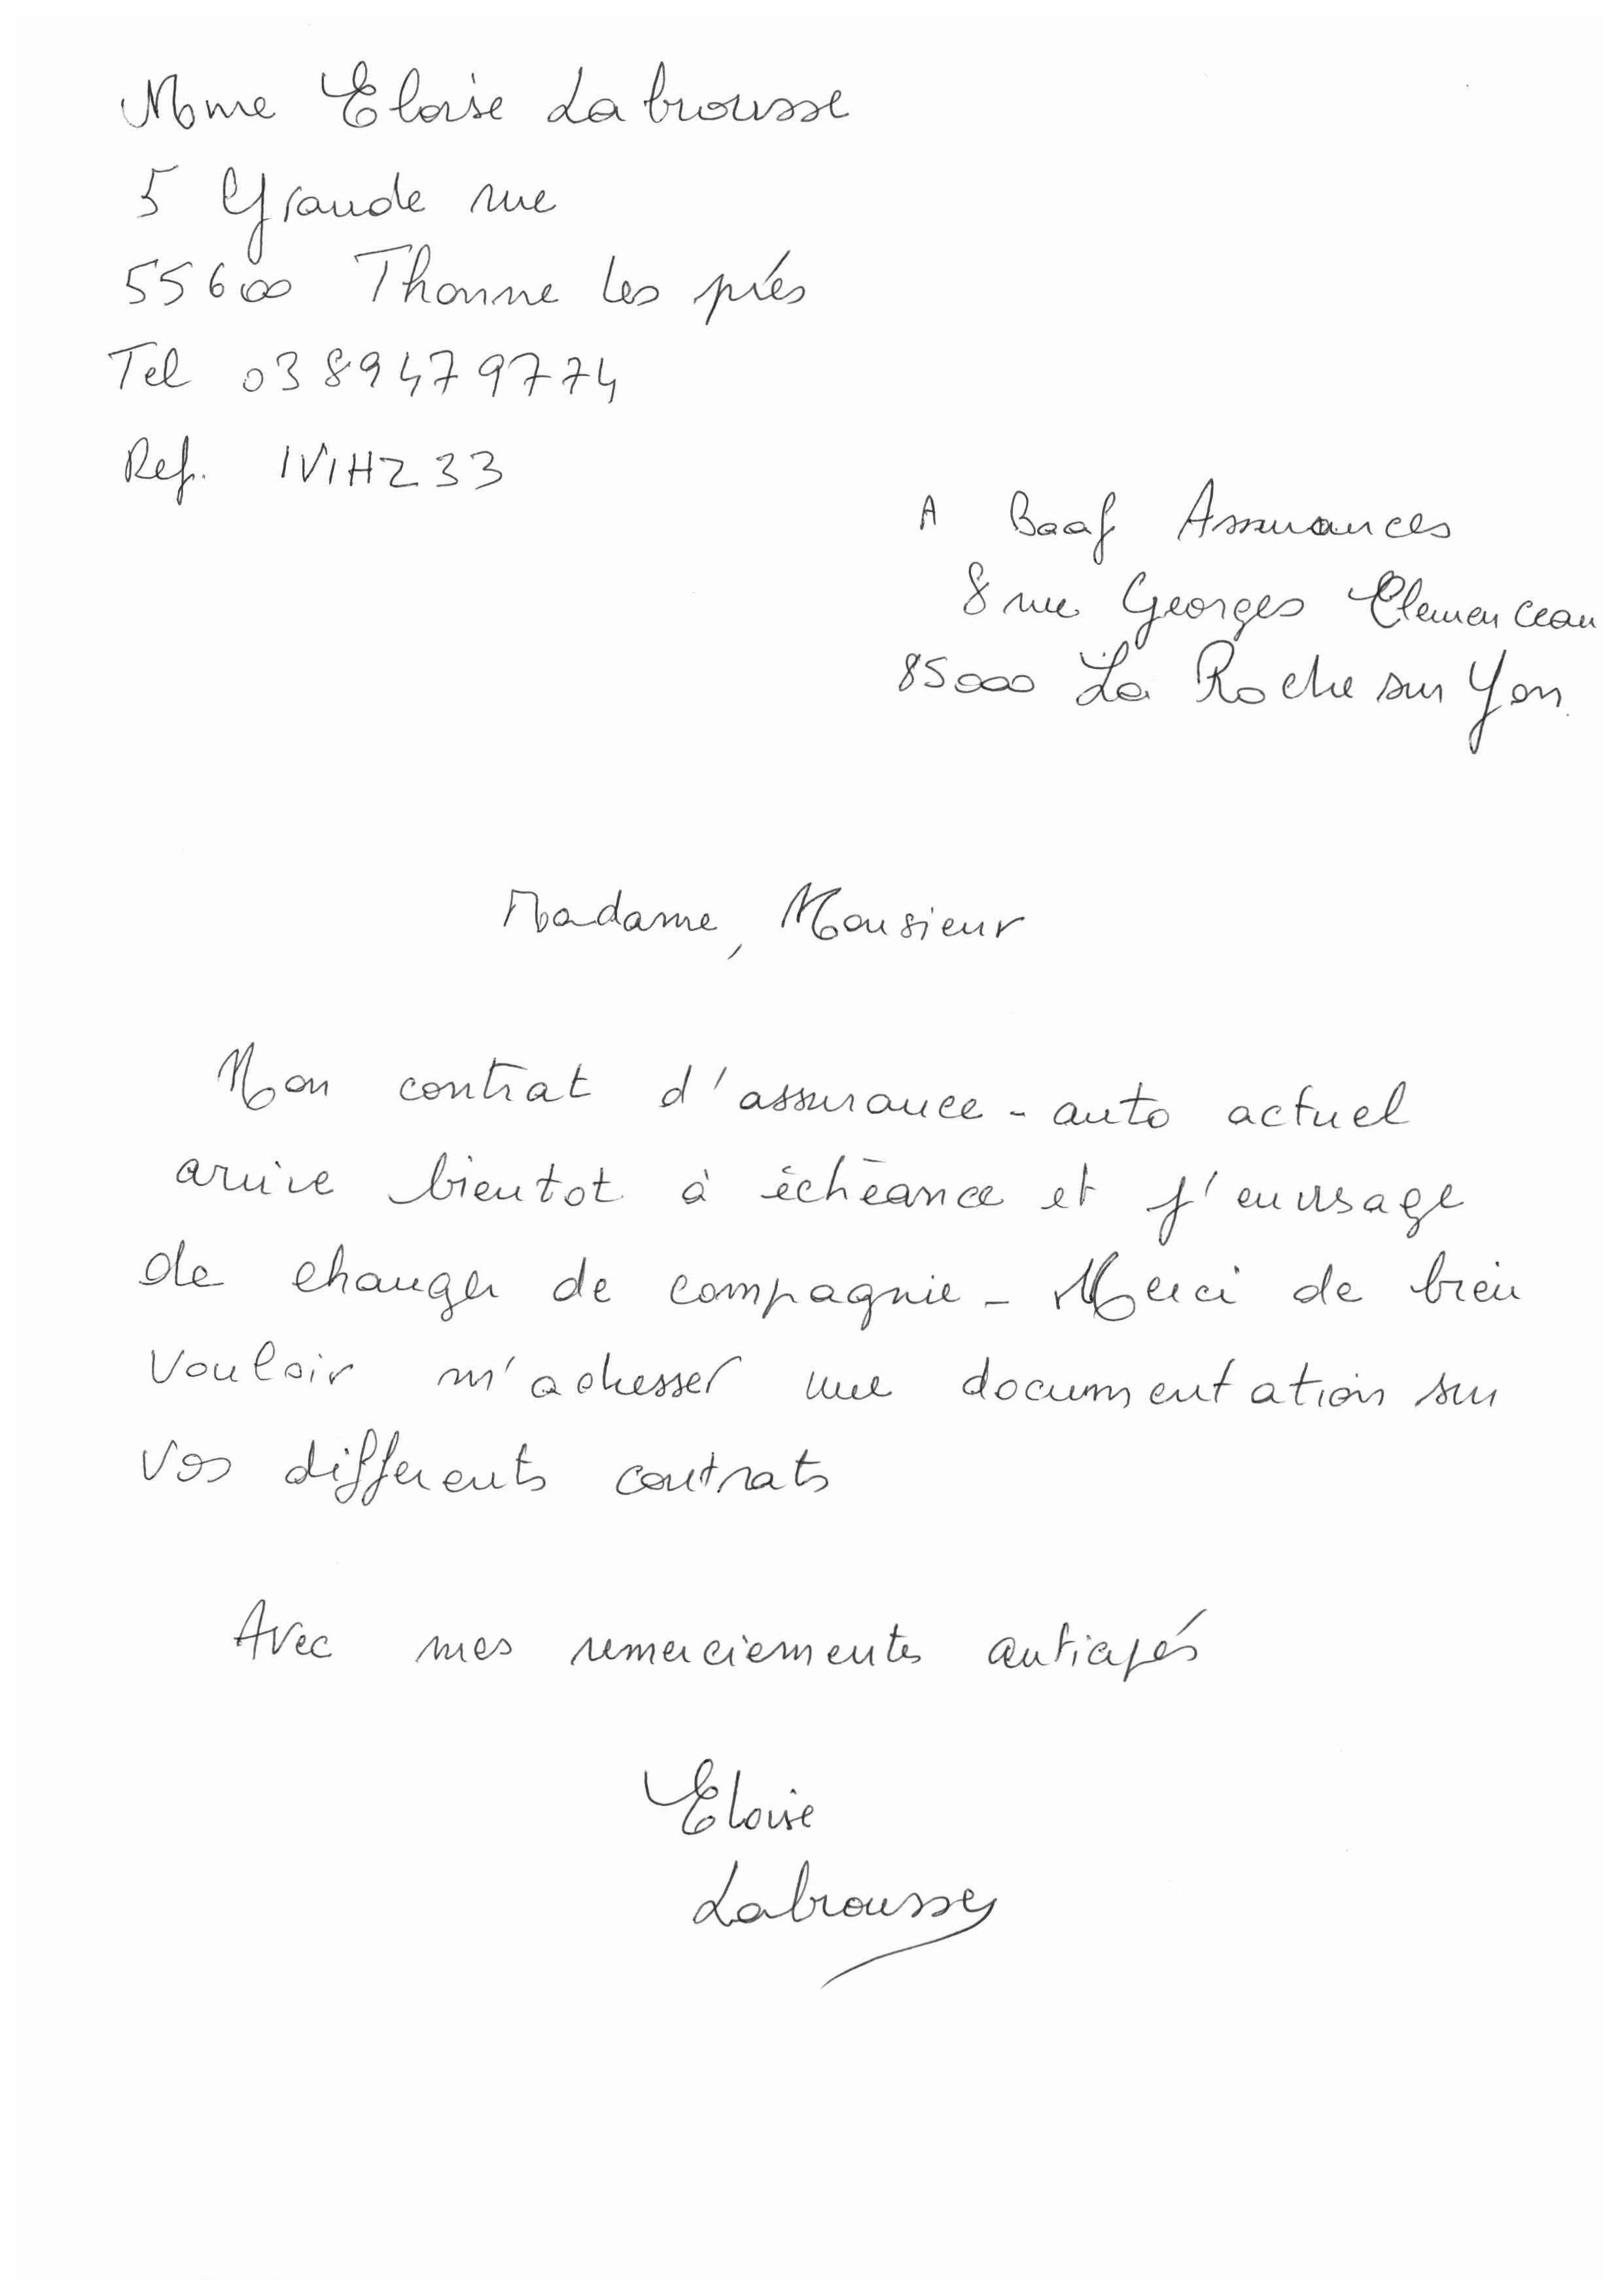 Mme Eloise Labrousse
5 Grande rue
55600 Thonne les prés
Tel 0389479774
Ref. IVIHZ33
A Baaf Assurances
8 rue Georges Clemenceau
85000 La Roche sur Yon.
Madame, Monsieur
Mon contrat d'assurance-auto actuel
arrive bientot à échéance et j'envisage
de changer de compagnie - Merci de bien
vouloir m'adresser une documentation sur
vos differents contrats
Avec mes remerciements anticipés
Eloise
Labrousse